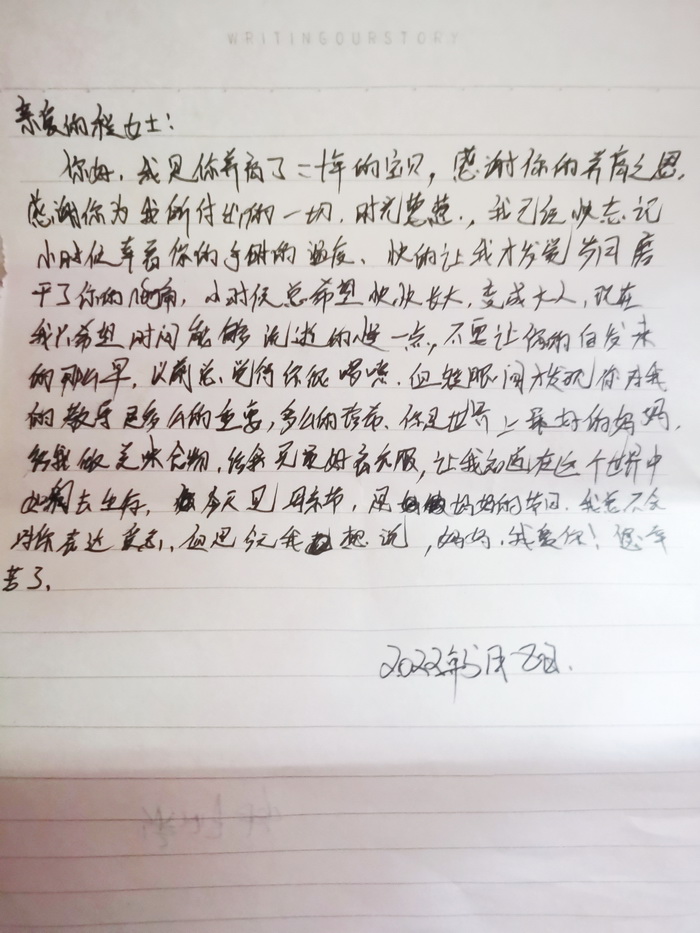 WRITINGOURSTORY
亲爱的程女士：
你好，我是你养育了二十年的宝贝，感谢你的养育之恩，
感谢你为我所付出的一切，时光荏苒，我已经快忘记
小时候牵着你的手时的温度、快的让我才发觉岁月磨
平了你的棱角，小时候总希望快快长大，变成大人，现在
我只希望时间能够流逝的慢一点，不要让你的白发来
的那么早，以前总觉得你很唠叨，但转眼间才发现你对我
的教导是多么的重要，多么的珍贵，你是世界上最好的妈妈，
给我做美味食物，给我买最好衣服，让我知道在这个世界中
去生存，今天是母亲节，是妈妈的节日，我总不会
对你表达爱意，但是今天我想说，妈妈，我爱你！您辛
苦了。
2022年5月8日.